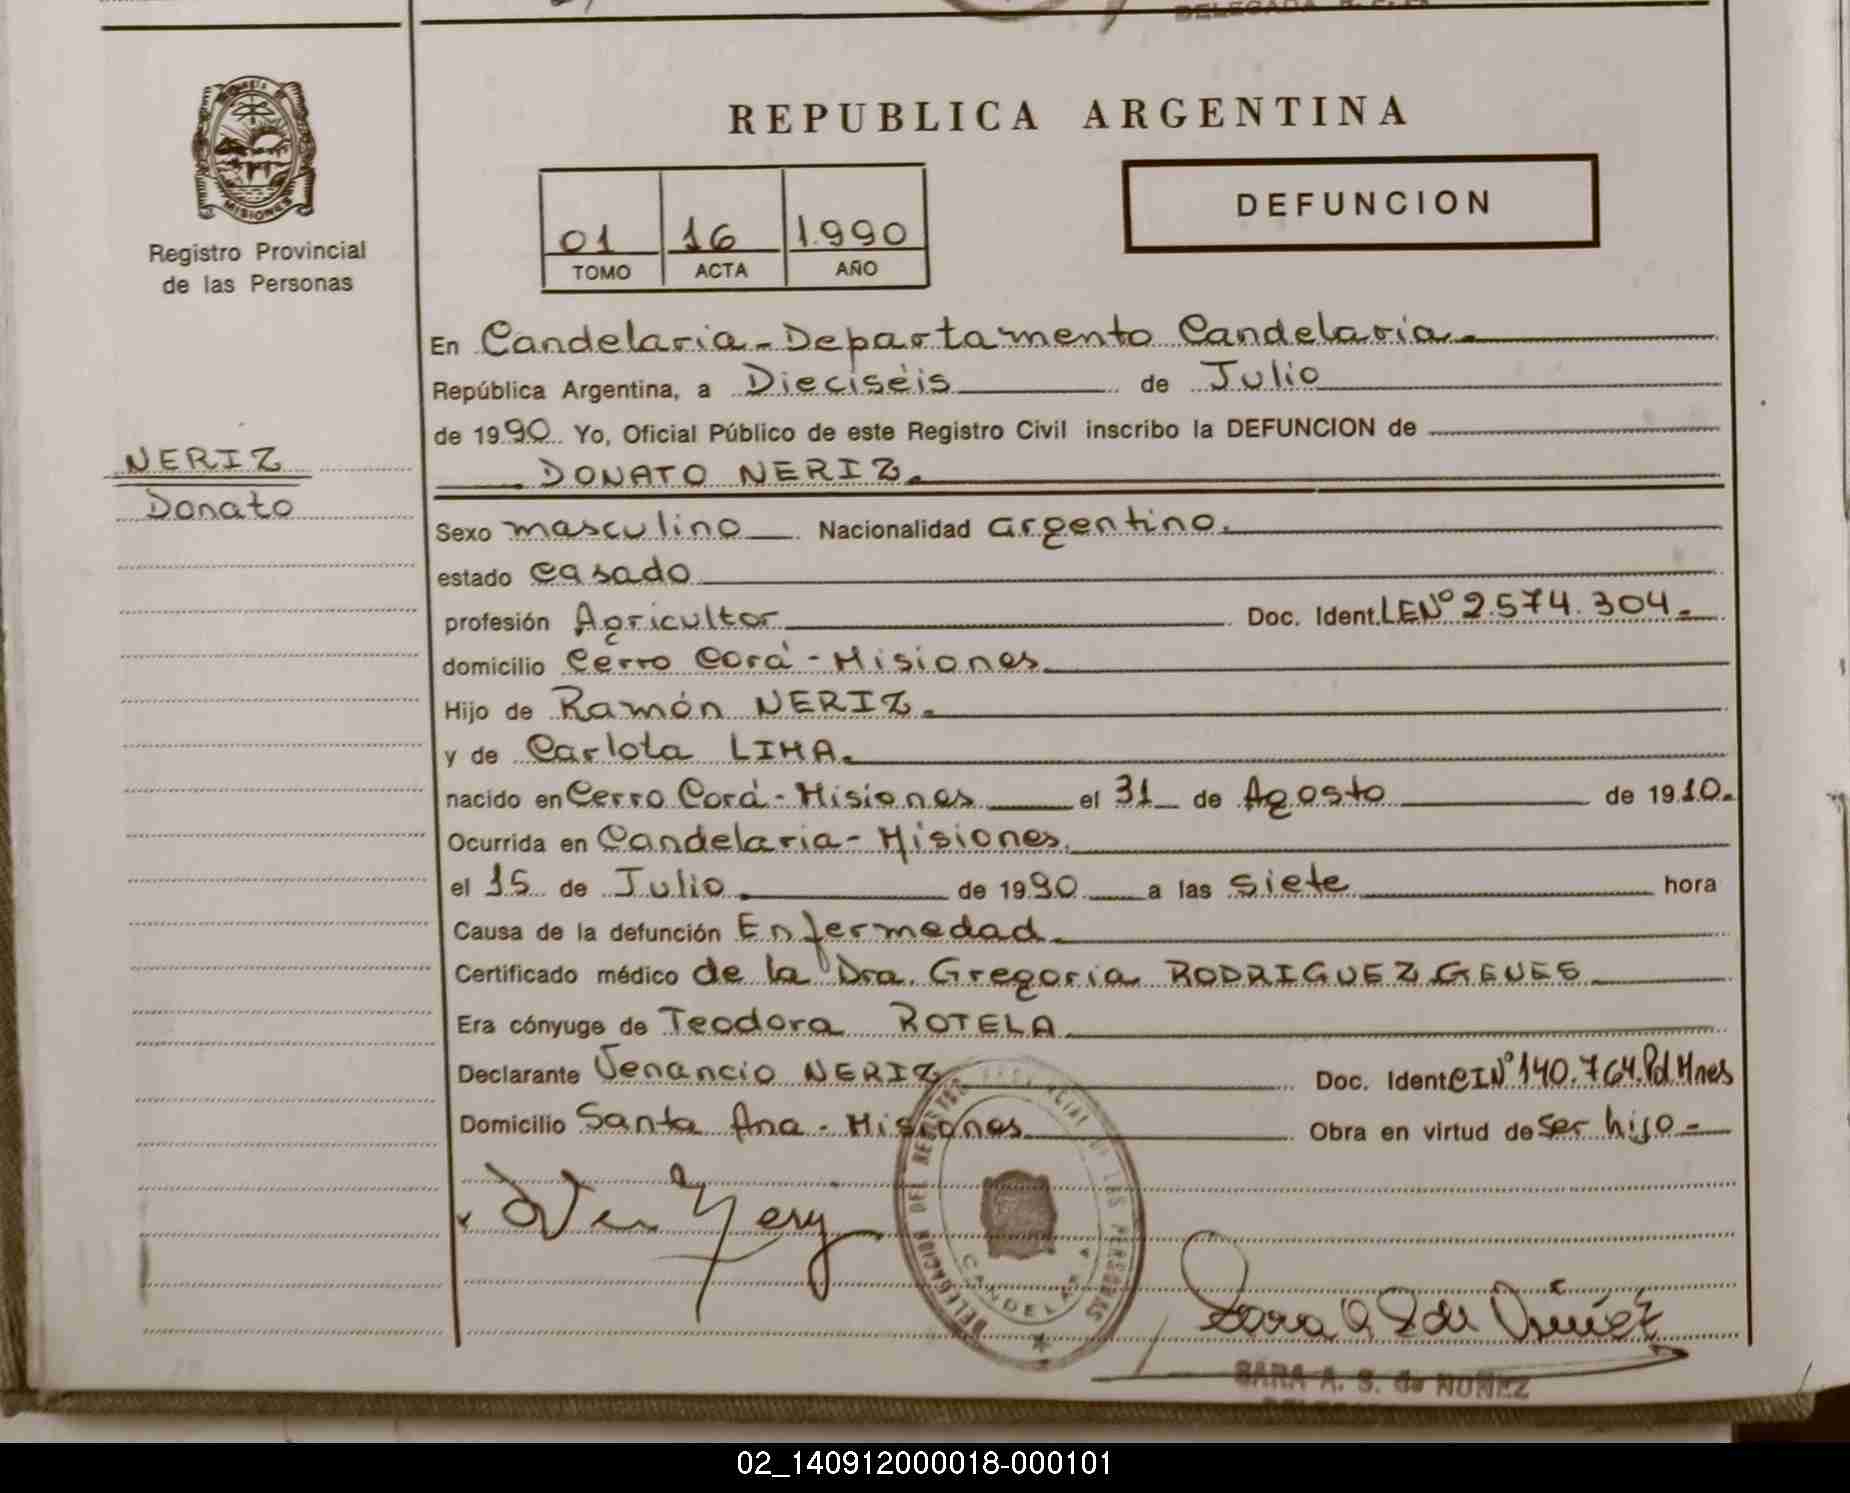 DELEGADA
REPUBLICA ARGENTINA
MISIONES
Registro Provincial
de las Personas
01 16 1.990
TOMO ACTA AÑO
DEFUNCION
En Candelaria - Departamento Candelaria.
República Argentina, a Dieciséis de Julio
de 1990 Yo, Oficial Público de este Registro Civil inscribo la DEFUNCION de
NERIZ
Donato
DONATO NERIZ.
Sexo masculino Nacionalidad argentino.
estado casado
profesión Agricultor Doc. Ident. LE Nº 2.574.304.
domicilio Cerro Corá - Misiones
Hijo de Ramón NERIZ.
y de Carlota LIMA.
nacido en Cerro Corá - Misiones el 31 de Agosto de 1910.
Ocurrida en Candelaria - Misiones.
el 15 de Julio de 1990 a las siete hora
Causa de la defunción Enfermedad.
Certificado médico de la Dra. Gregoria RODRIGUEZ GENES
Era cónyuge de Teodora ROTELA
Declarante Venancio NERIZ Doc. Ident CI Nº 140.764. Pol Mnes
Domicilio Santa Ana - Misiones Obra en virtud de ser hijo -
DELEGACION DEL REGISTRO PROVINCIAL DE LAS PERSONAS
CANDELARIA
SARA A. S. de NUÑEZ
02_140912000018-000101